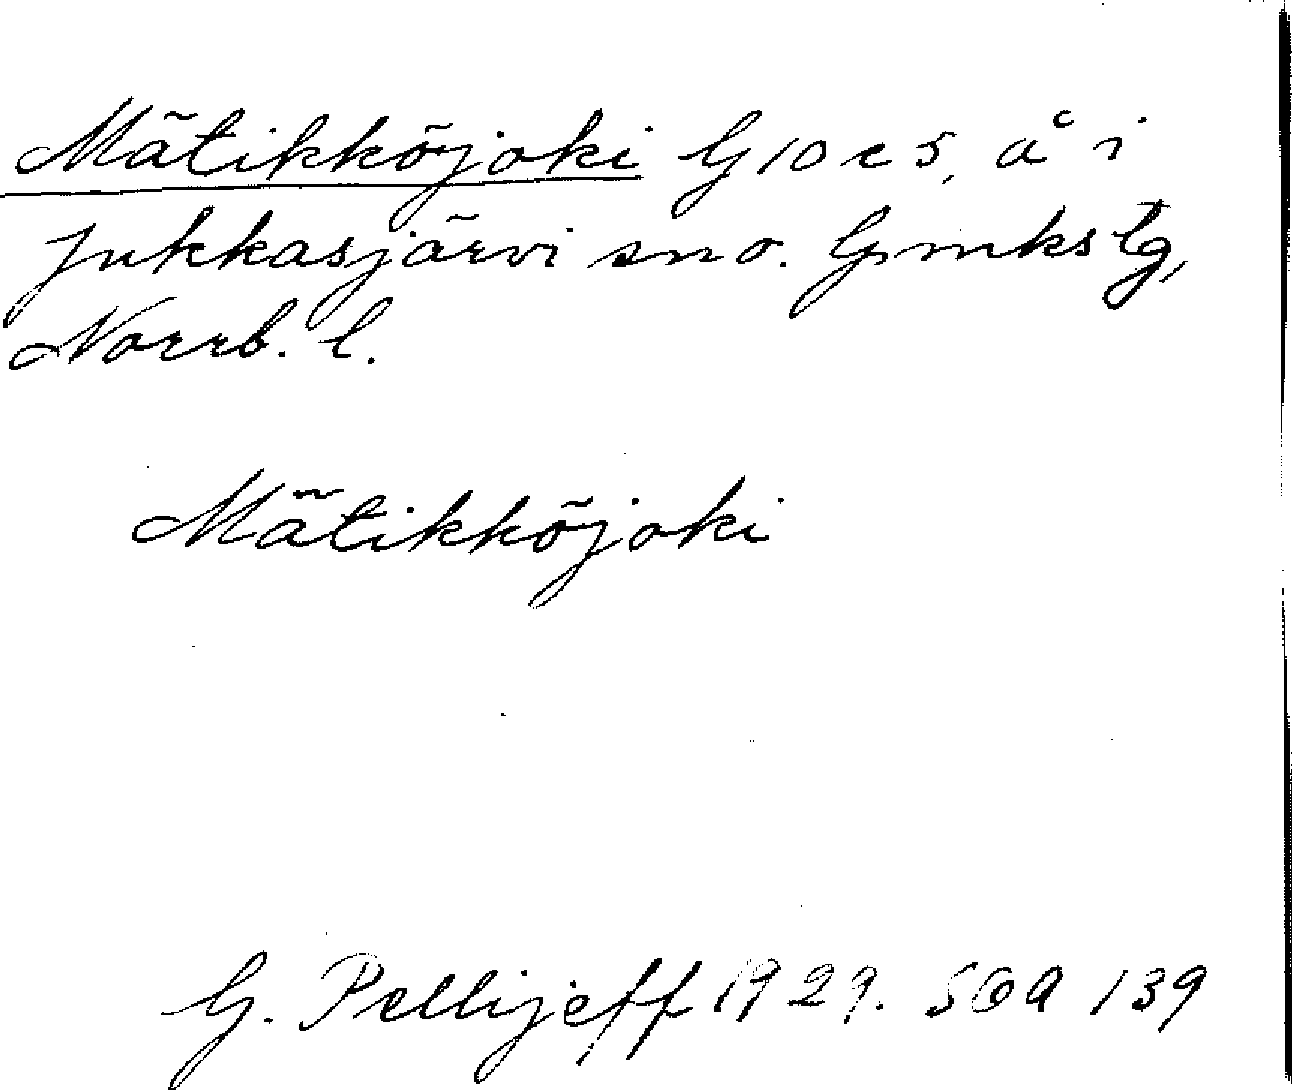 Mätikköjoki G10c5, å i
Jukkasjärvi sn o. Gmkstg,
Norrb. l.
Mätikköjoki
G. Pellijeff 1929. SOA 139